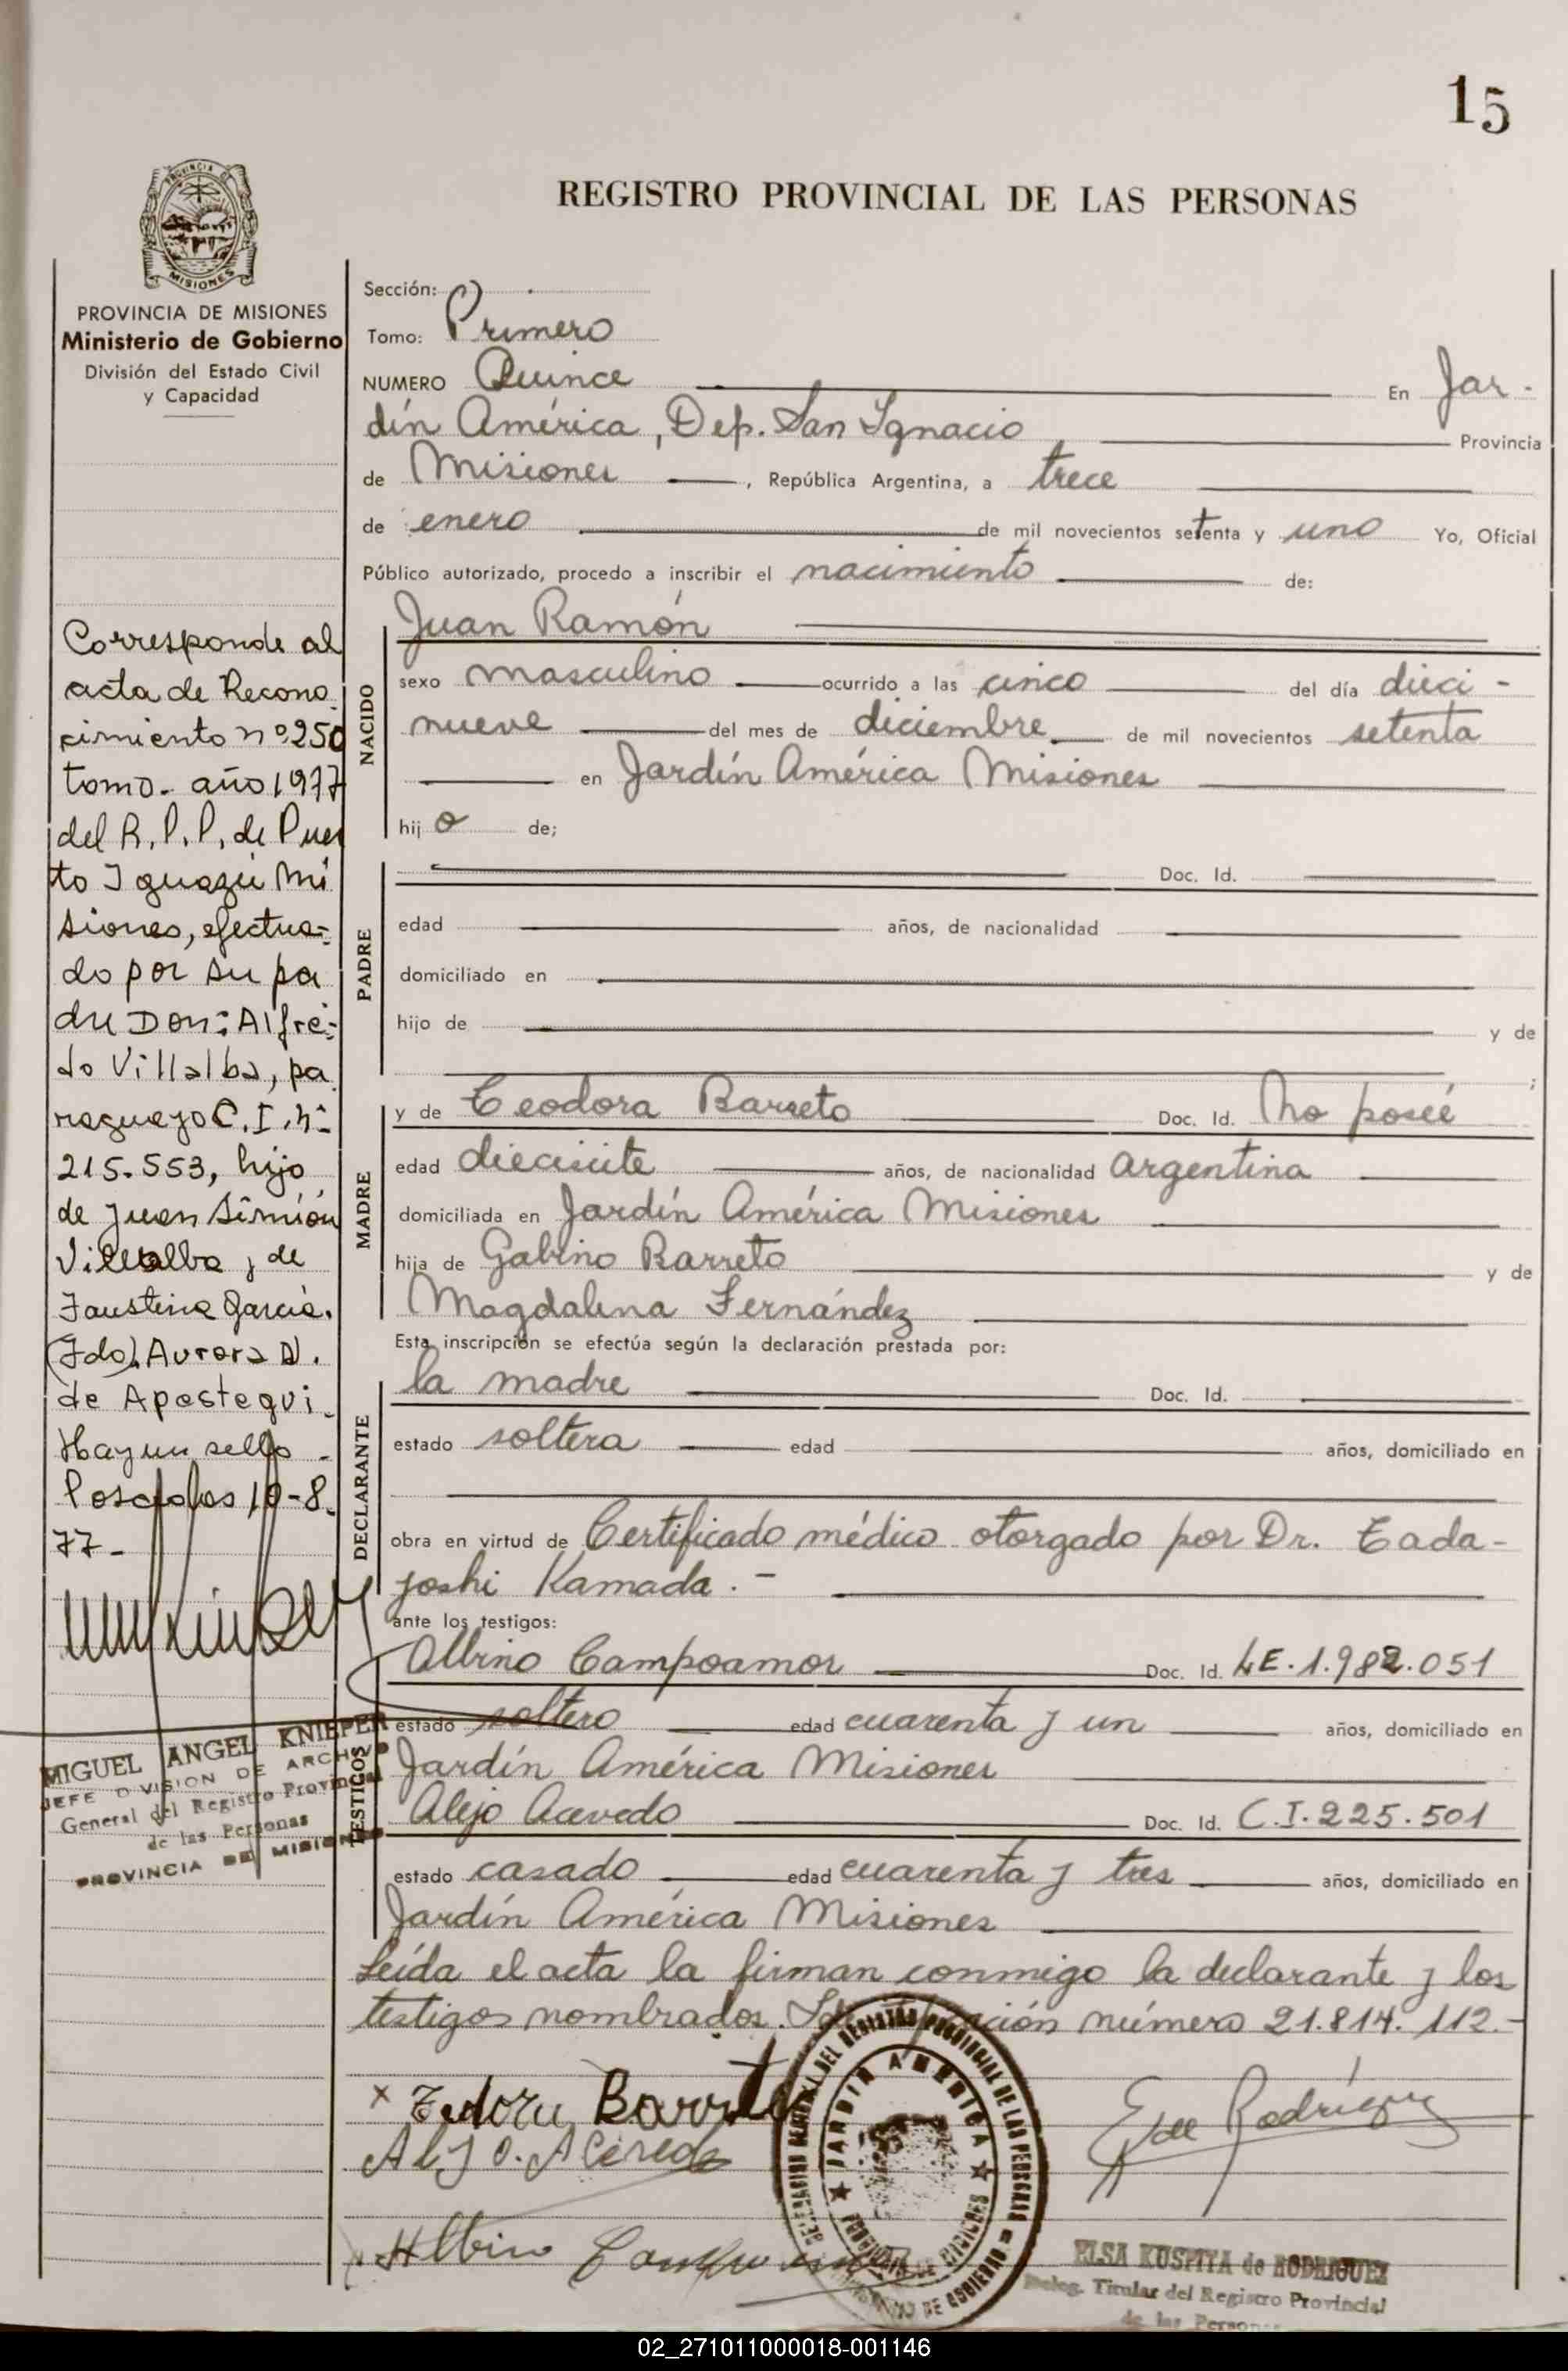 15
REGISTRO PROVINCIAL DE LAS PERSONAS
MISIONES
PROVINCIA DE MISIONES
Ministerio de Gobierno
División del Estado Civil
y Capacidad
Corresponde al
acta de Recono
cimiento nº 250
tomo - año 1977
del R.P.P. de Puer
to Iguazú Mi
siones, efectua-
do por su pa
dre Don: Alfre-
do Villalba, pa
raguayo C.I.nº
215.553, hijo
de Juan Simión
Villalba y de
Faustina García.
(Fdo). Aurora D.
de Apestegui
Hay un sello -
Posadas 10-8-
77-
MIGUEL ANGEL KNIEPER
JEFE DIVISION DE ARCHIVO
General del Registro Provincial
de las Personas
PROVINCIA DE MISIONES
Sección:
Tomo: Primero
NUMERO Quince En Jar-
dín América, Dep. San Ignacio Provincia
de Misiones, República Argentina, a trece
de enero de mil novecientos setenta y uno Yo, Oficial
Público autorizado, procedo a inscribir el nacimiento de:
NACIDO
Juan Ramón
sexo masculino ocurrido a las cinco del día dieci-
nueve del mes de diciembre de mil novecientos setenta
en Jardín América Misiones
hijo de;
PADRE
Doc. Id.
edad años, de nacionalidad
domiciliado en
hijo de y de
;
MADRE
y de Teodora Barreto Doc. Id. No poseé
edad diecisiete años, de nacionalidad argentina
domiciliada en Jardín América Misiones
hija de Gabino Barreto y de
Magdalena Fernández
Esta inscripción se efectúa según la declaración prestada por:
DECLARANTE
la madre Doc. Id.
estado soltera edad años, domiciliado en
obra en virtud de Certificado médico otorgado por Dr. Tada-
joshi Kamada.-
ante los testigos:
TESTIGOS
Albino Campoamor Doc. Id. LE.1.982.051
estado soltero edad cuarenta y un años, domiciliado en
Jardín América Misiones
Alejo Acevedo Doc. Id. C.I.225.501
estado casado edad cuarenta y tres años, domiciliado en
Jardín América Misiones
Leída el acta la firman conmigo la declarante y los
testigos nombrados. número 21.814.112.-
JARDIN AMERICA
ELSA KUSPITA de RODRIGUEZ
Deleg. Titular del Registro Provincial
de las Personas
02_271011000018-001146